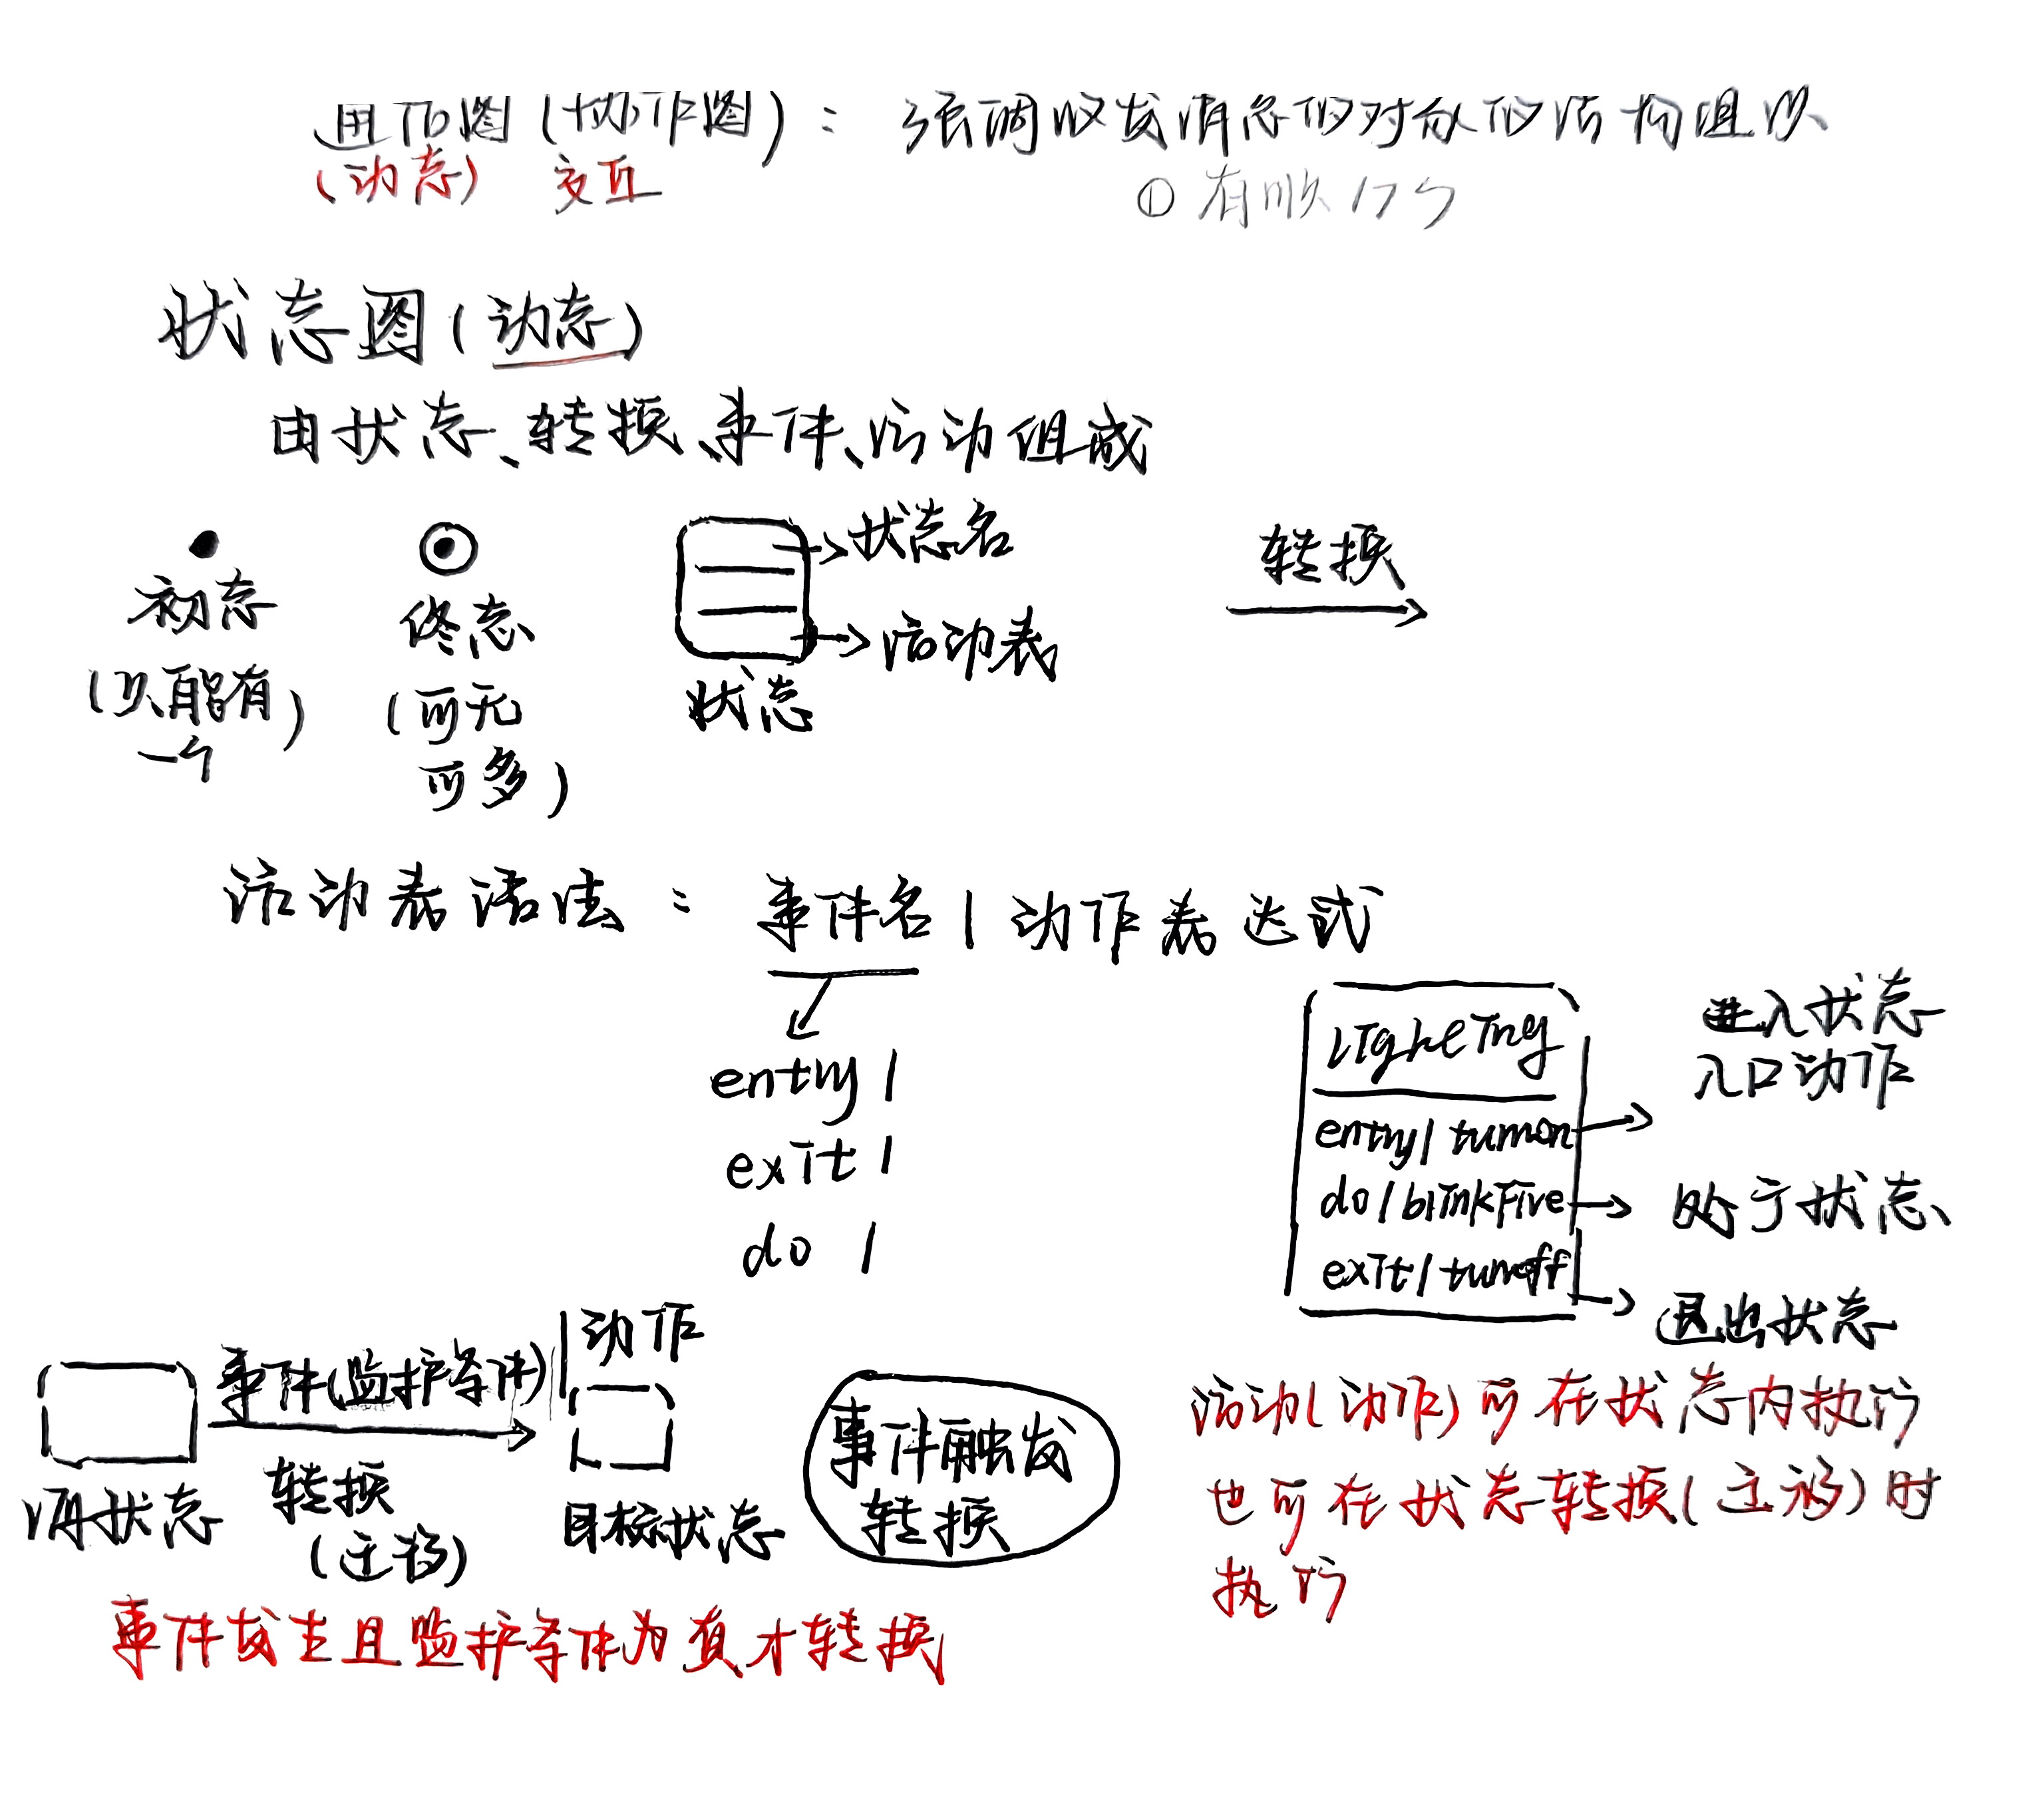 通信图(协作图)：强调收发消息的对象的结构组织
(动态) 交互
① 有顺序号
状态图(动态)
由状态、转换、事件、活动组成
初态
(只能有
一个)
终态
(可无
可多)
状态名
活动表
状态
转换
活动表语法：事件名 / 动作表达式
entry /
exit /
do /
Lighting
entry/turnon
do/blinkFive
exit/turnoff
进入状态
入口动作
处于状态
退出状态
事件(监护条件) / 动作
源状态
转换
(迁移)
目标状态
事件触发
转换
活动(动作)可在状态内执行
也可在状态转换(迁移)时
执行
事件发生且监护条件为真才转换